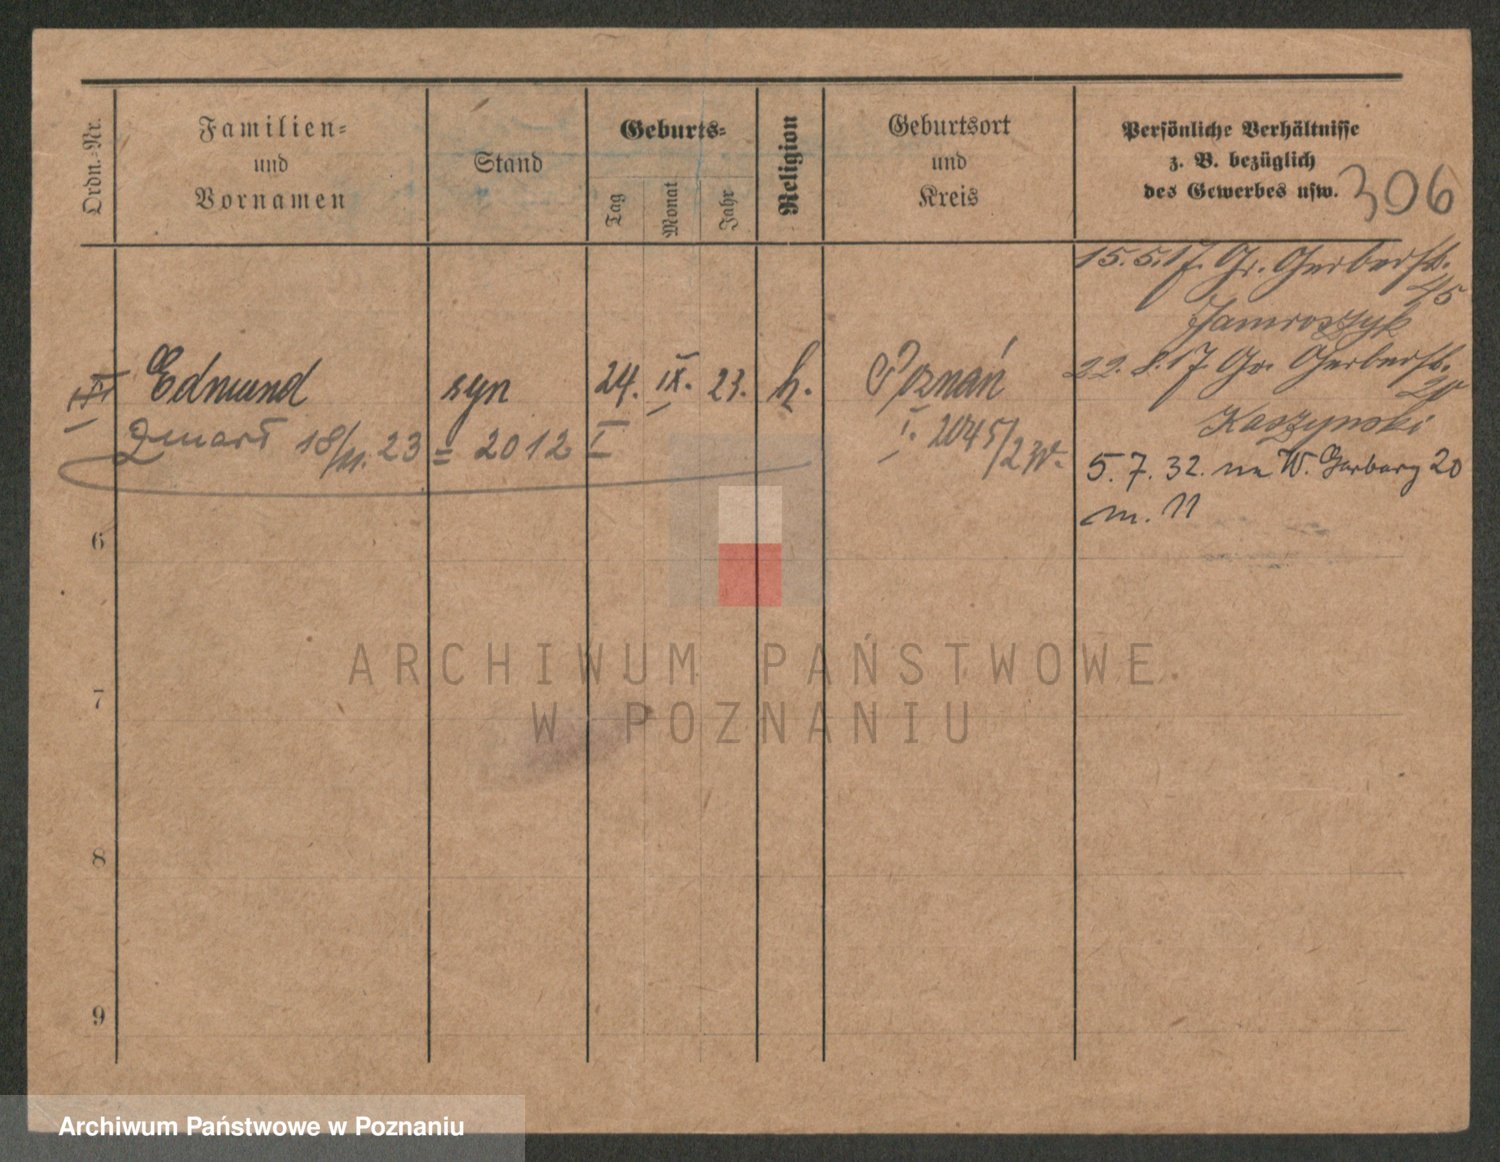 Ordn.-Nr.
Familien-
und
Vornamen
Stand
Geburts-
Tag
Monat
Jahr
Religion
Geburtsort
und
Kreis
Persönliche Verhältnisse
z. B. bezüglich
des Gewerbes usw.
306
15.5.17. Gr. Gerberstr.
45
Jamroszyk
22. 8. 17. Gr. Gerberstr.
20
Kaszynski
5. 7. 32. na W. Garbary 20
m. 11
Edmund syn 24. IX. 23. k. Poznań
zmarł 18/11. 23 = 2012 I
I. 2045/23
6
7
8
9
ARCHIWUM PAŃSTWOWE
W POZNANIU
Archiwum Państwowe w Poznaniu